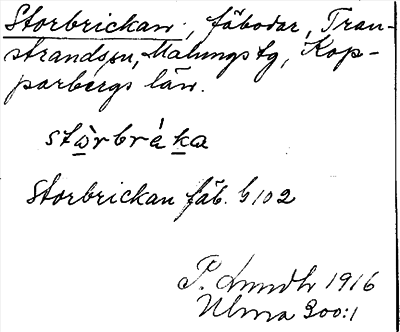 Storbrickan, fäbodar, Tran-
strands sn, Malungs tg, Kop-
parbergs län.
stòrbråka
Storbrickan fäb. G 102
P. Lundh 1916
Ulma 300:1